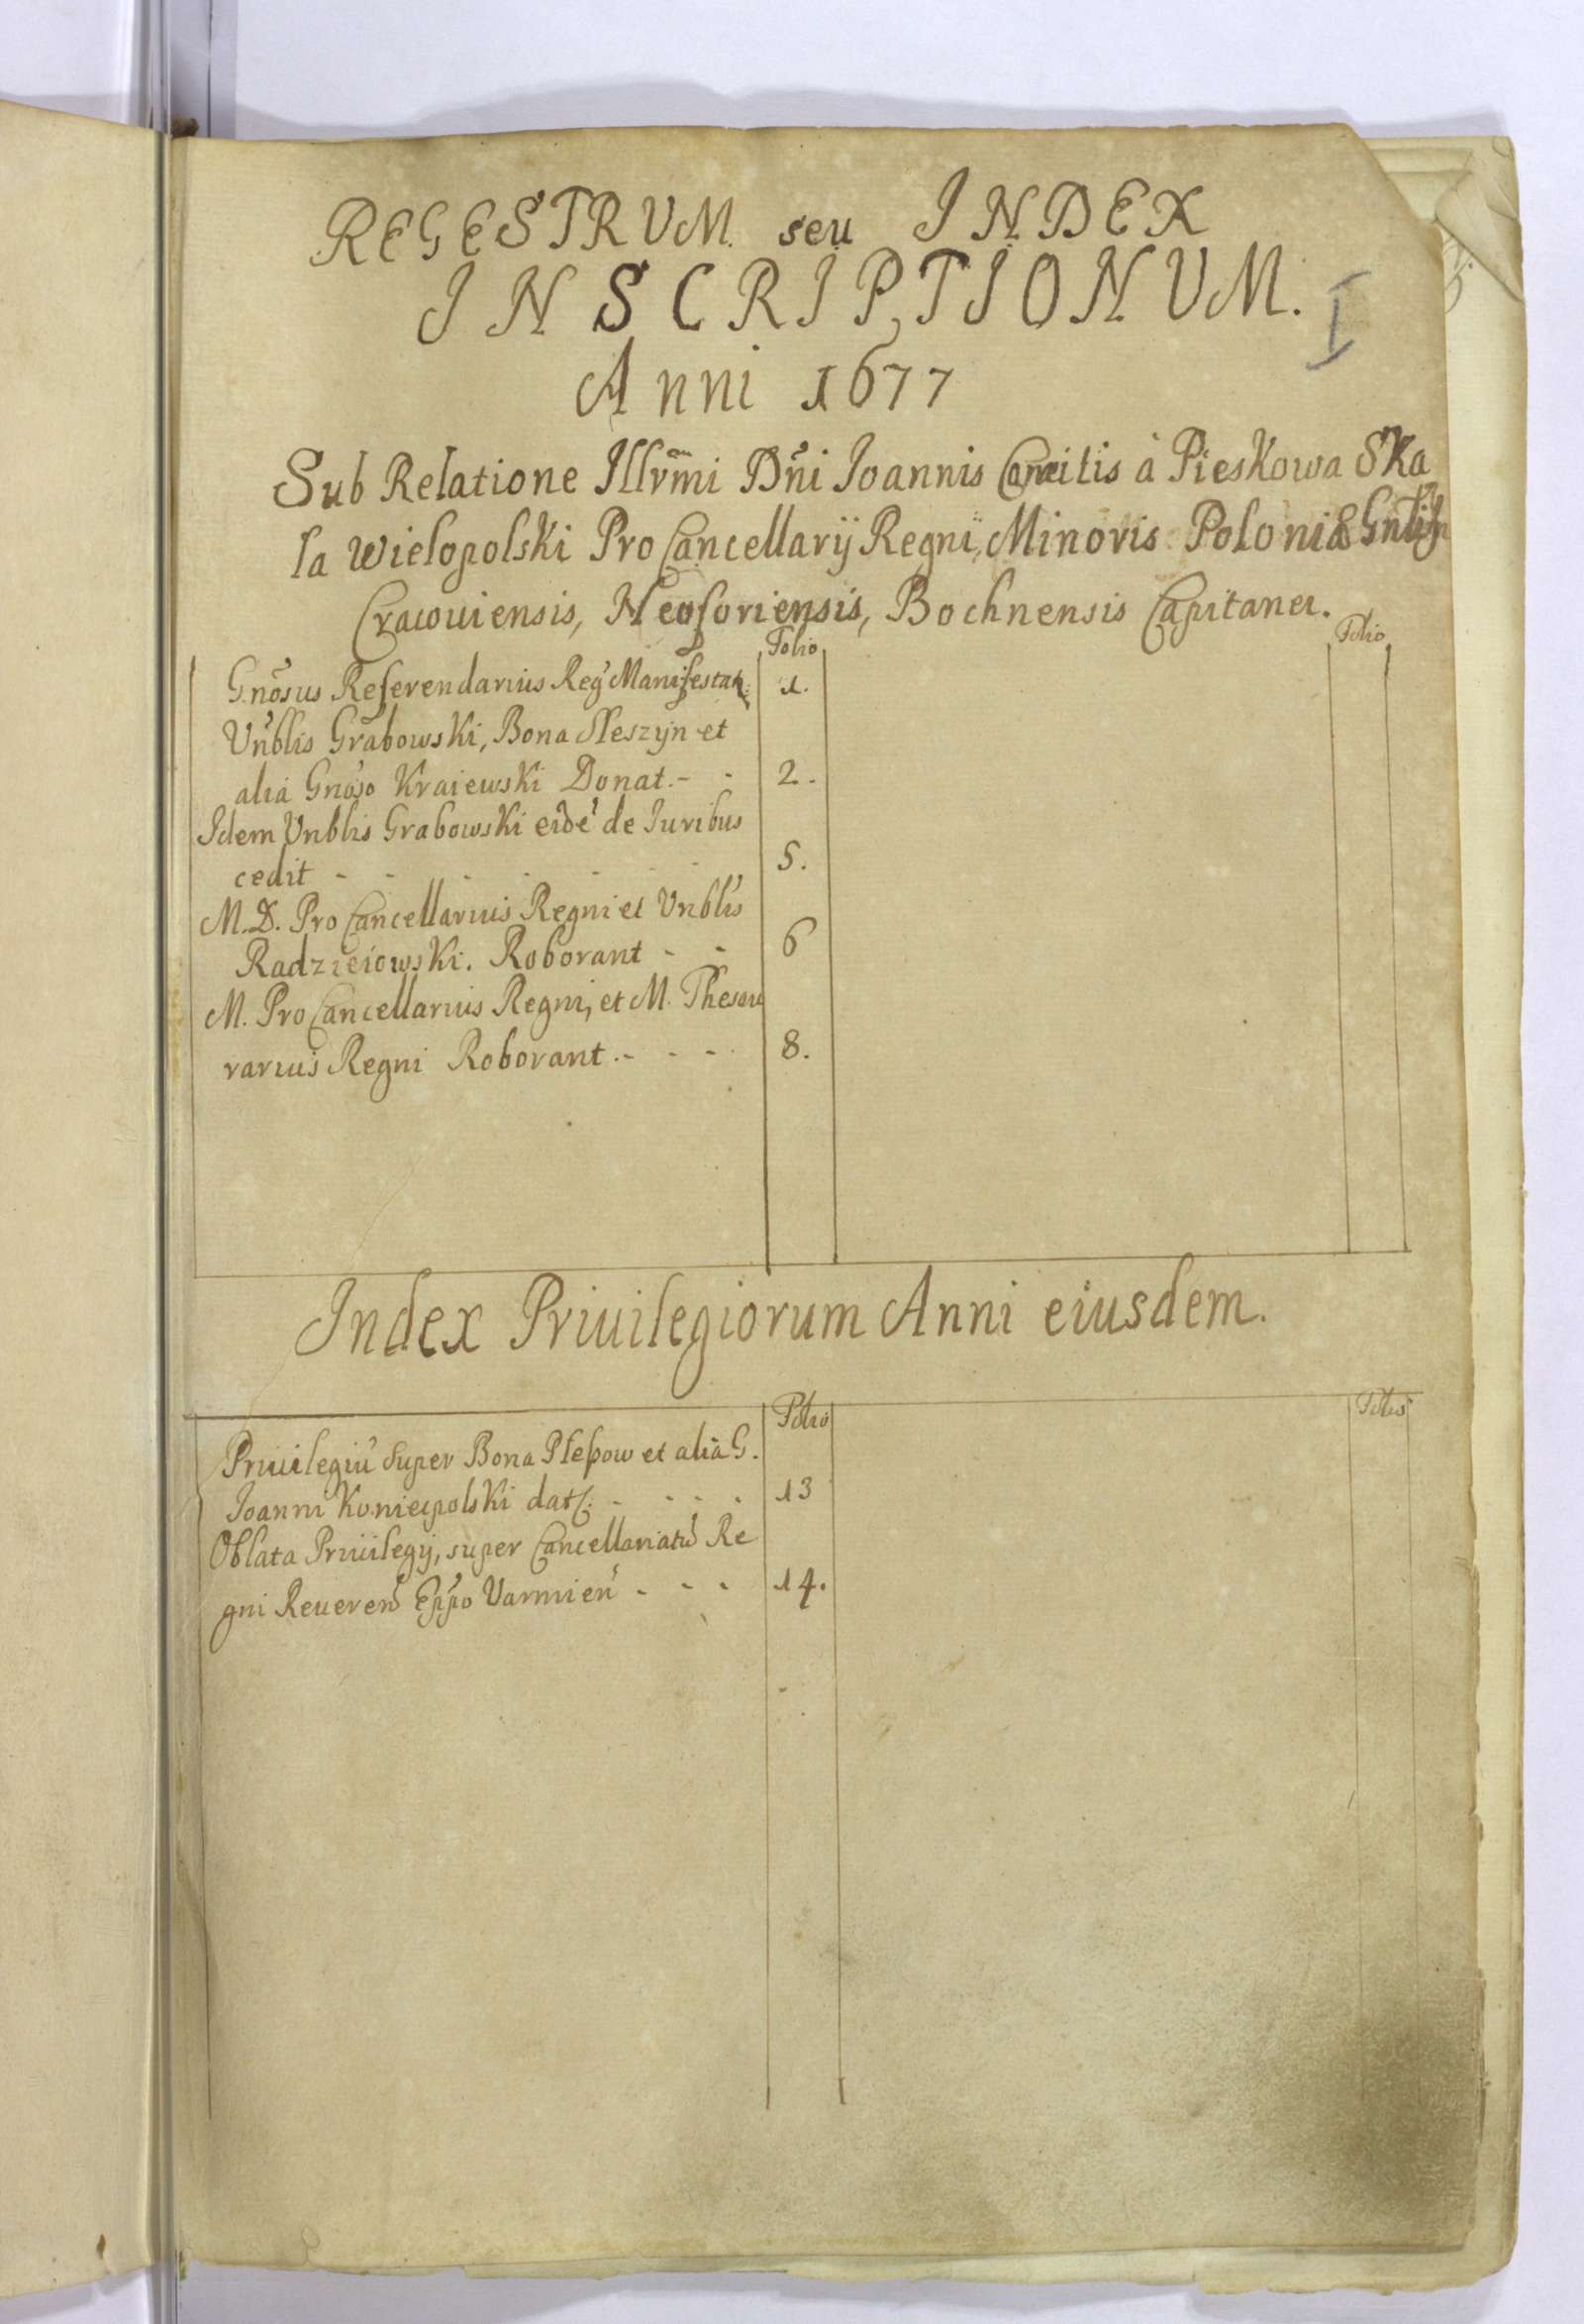 REGESTRUM. seu INDEX
INSCRIPTIONUM. I
Anni 1677
Sub Relatione Illrm̃i Dñi Joannis Comitis à Pieskowa Ska
la Wielopolski ProCancellarij Regni, Minoris Poloniæ Gnlis
Cracouiensis, Neoforiensis, Bochnensis Capitanei.
Folio Folio
Gnosus Referendarius Reg Manifestatr 1.
Vnblis Grabowski, Bona Pleszyn et
alia Gnoso Kraiewski Donat. - - 2.
Idem Vnblis Grabowski eidē de Juribus
cedit - - - - - - 5.
M. D. ProCancellarius Regni et Vnblis
Radzieiowski. Roborant - - 6
M. ProCancellarius Regni, et M. Thesau
rarius Regni Roborant. - - - 8.
Index Priuilegiorum Anni eiusdem.
Folio Folio
Priuilegiū super Bona et alia G.
Joanni Koniecpolski dat: - - - - 13
Oblata Priuilegij, super Cancellariatū Re
gni Reueren Eppo Varmien - - - 14.